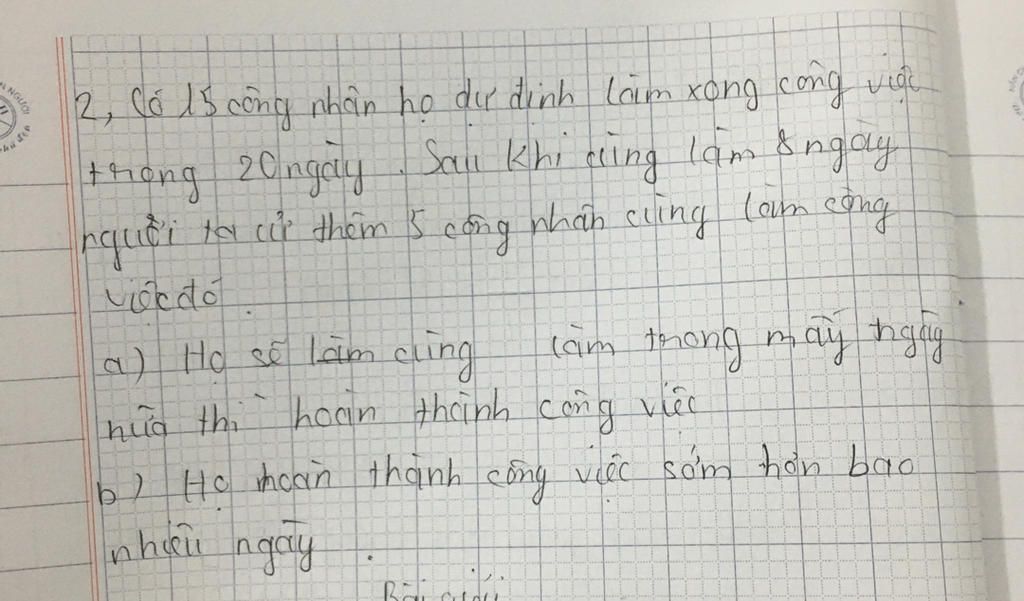 2, Có 15 công nhân họ dự định làm xong công việc
trong 20 ngày. Sau khi cùng làm 8 ngày
người ta cử thêm 5 công nhân cùng làm công
việc đó.
a) Họ sẽ làm cùng làm trong mấy ngày
nữa thì hoàn thành công việc
b) Họ hoàn thành công việc sớm hơn bao
nhiêu ngày.
Bài giải